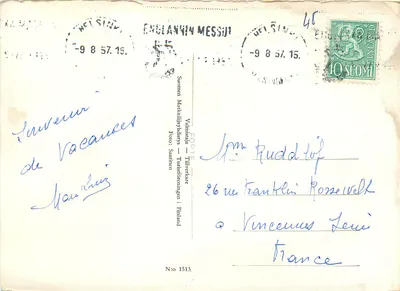 HELSINKI
-9.8.57.15.
ENGLANNIN MESSUT
HELSINKI
-9.8.57.15.
45
10 SUOMI
Souvenir
de Vacances
Valmistaja — Tillverkare
Suomen Matkailijayhdistys — Turistföreningen i Finland
Foto: Suominen
Mme Ruddlof
26 rue Franklin Rossewelt
a Vincennes
France
N:o 1513